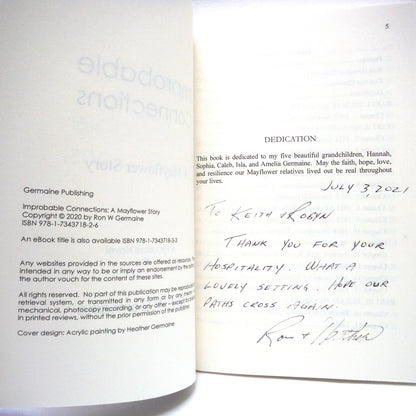 Germaine Publishing
Improbable Connections: A Mayflower Story
Copyright © 2020 by Ron W Germaine
ISBN 978-1-7343718-2-6
An eBook title is also available ISBN 978-1-7343718-3-3
Any websites provided in the sources are offered as resources. They
intended in any way to be or imply an endorsement by the
the author vouch for the content of these sites.
All rights reserved. No part of this publication may be reproduced
retrieval system, or transmitted in any form or by any means
mechanical, photocopy recording, or any other - except
in printed reviews, without the prior permission of the publisher
Cover design: Acrylic painting by Heather Germaine
5
DEDICATION
This book is dedicated to my five beautiful grandchildren, Hannah,
Sophia, Caleb, Isla, and Amelia Germaine. May the faith, hope, love,
and resilience our Mayflower relatives lived out be real throughout
your lives.
JULY 3, 2021
TO KEITH + ROBYN
THANK YOU FOR YOUR
HOSPITALITY. WHAT A
LOVELY SETTING. HOPE OUR
PATHS CROSS AGAIN.
Ron + Heather